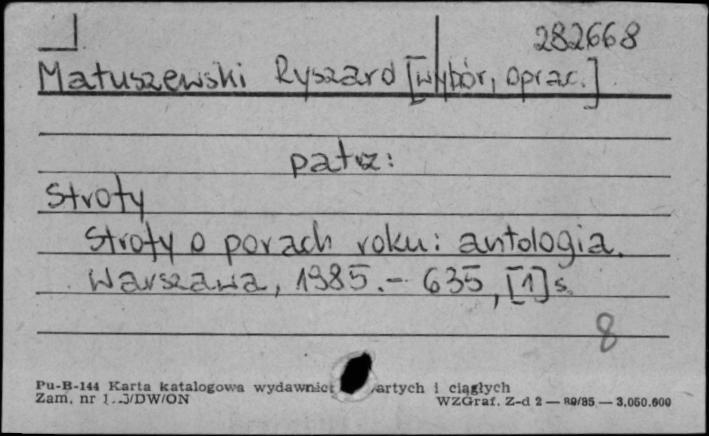 282668
Matuszewski Ryszard [wybór, oprac.]
patrz:
Strofy
Strofy o porach roku: antologia.
Warszawa, 1985.- 635, [1] s.
8
Pu-B-144 Karta katalogowa i ciągłych
Zam. nr WZGraf. Z-d 2 — 89/85 — 3.050.000